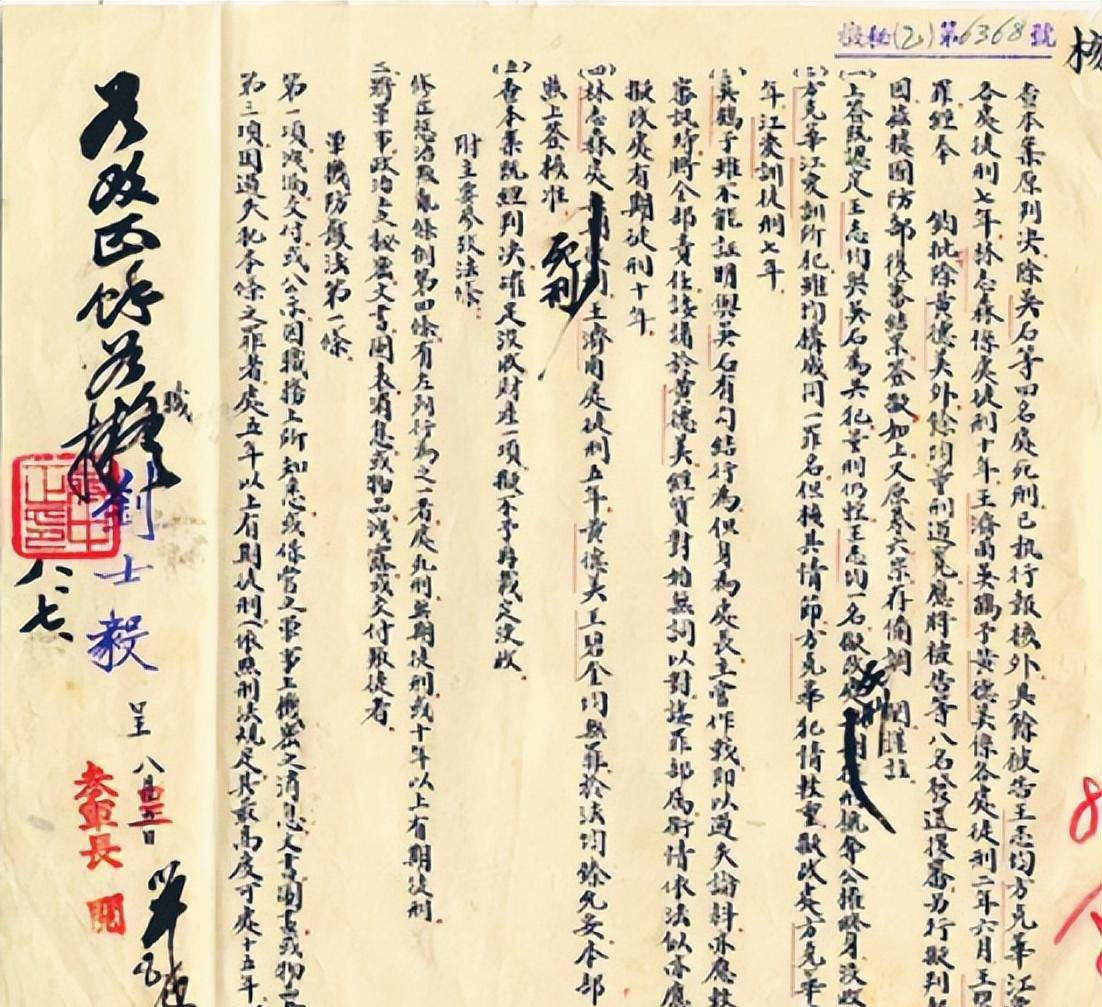 機秘(乙)第6368號
查本案原判決除吳石等四名處死刑已执行報核外其餘被告王志均方克華江
各處徒刑七年林志森係處徒刑十年王濟甫吳鶴予黃德美係各處徒刑二年六月王碧
罪經奉 鈞批除黃德美外餘均重刑過寬應將被告等八名發還復審另行擬判
因茲據國防部復審結果簽報如上又原卷六宗存備調閱謹註
(一)上簽既認定王志均與吳石為共犯量刑仍輕王志均一名擬改處 死刑 褫奪公權終身沒收
(二)方克華江愛訓所犯雖均構成同一罪名但核其情節方克華犯情較重擬改處方克華
年江愛訓徒刑七年
(三)吳鶴予雖不能証明與吳石有勾結行為但身為處長主管作戰即以過失論科亦應
審訊時將全部責任諉諸於黃德美經質對始無詞以對該罪部屬衡情依法似亦應
擬改處有期徒刑十年
(四)林志森處 死刑 王濟甫處徒刑五年黃德美王碧奎均無罪於法均除免妥本部
照上簽核准
(五)查本案既經判決確定沒收財產一項擬不予再裁定沒收
附主要參攷法條
修正懲治叛亂條例第四條有左列行為之一者處死刑無期徒刑或十年以上有期徒刑
三將軍事政治上秘密文書圖表消息或物品洩露或交付叛徒者
軍機防護法第一條
第一項洩漏交付或公示因職務上所知悉或保管之軍事上機密之消息文書圖書或物品
第三項因過失犯本條之罪者處五年以上有期徒刑(依照刑法規定其最高度可處十五年
職
劉士毅
呈
八月 日
參軍長
閱
八、七、